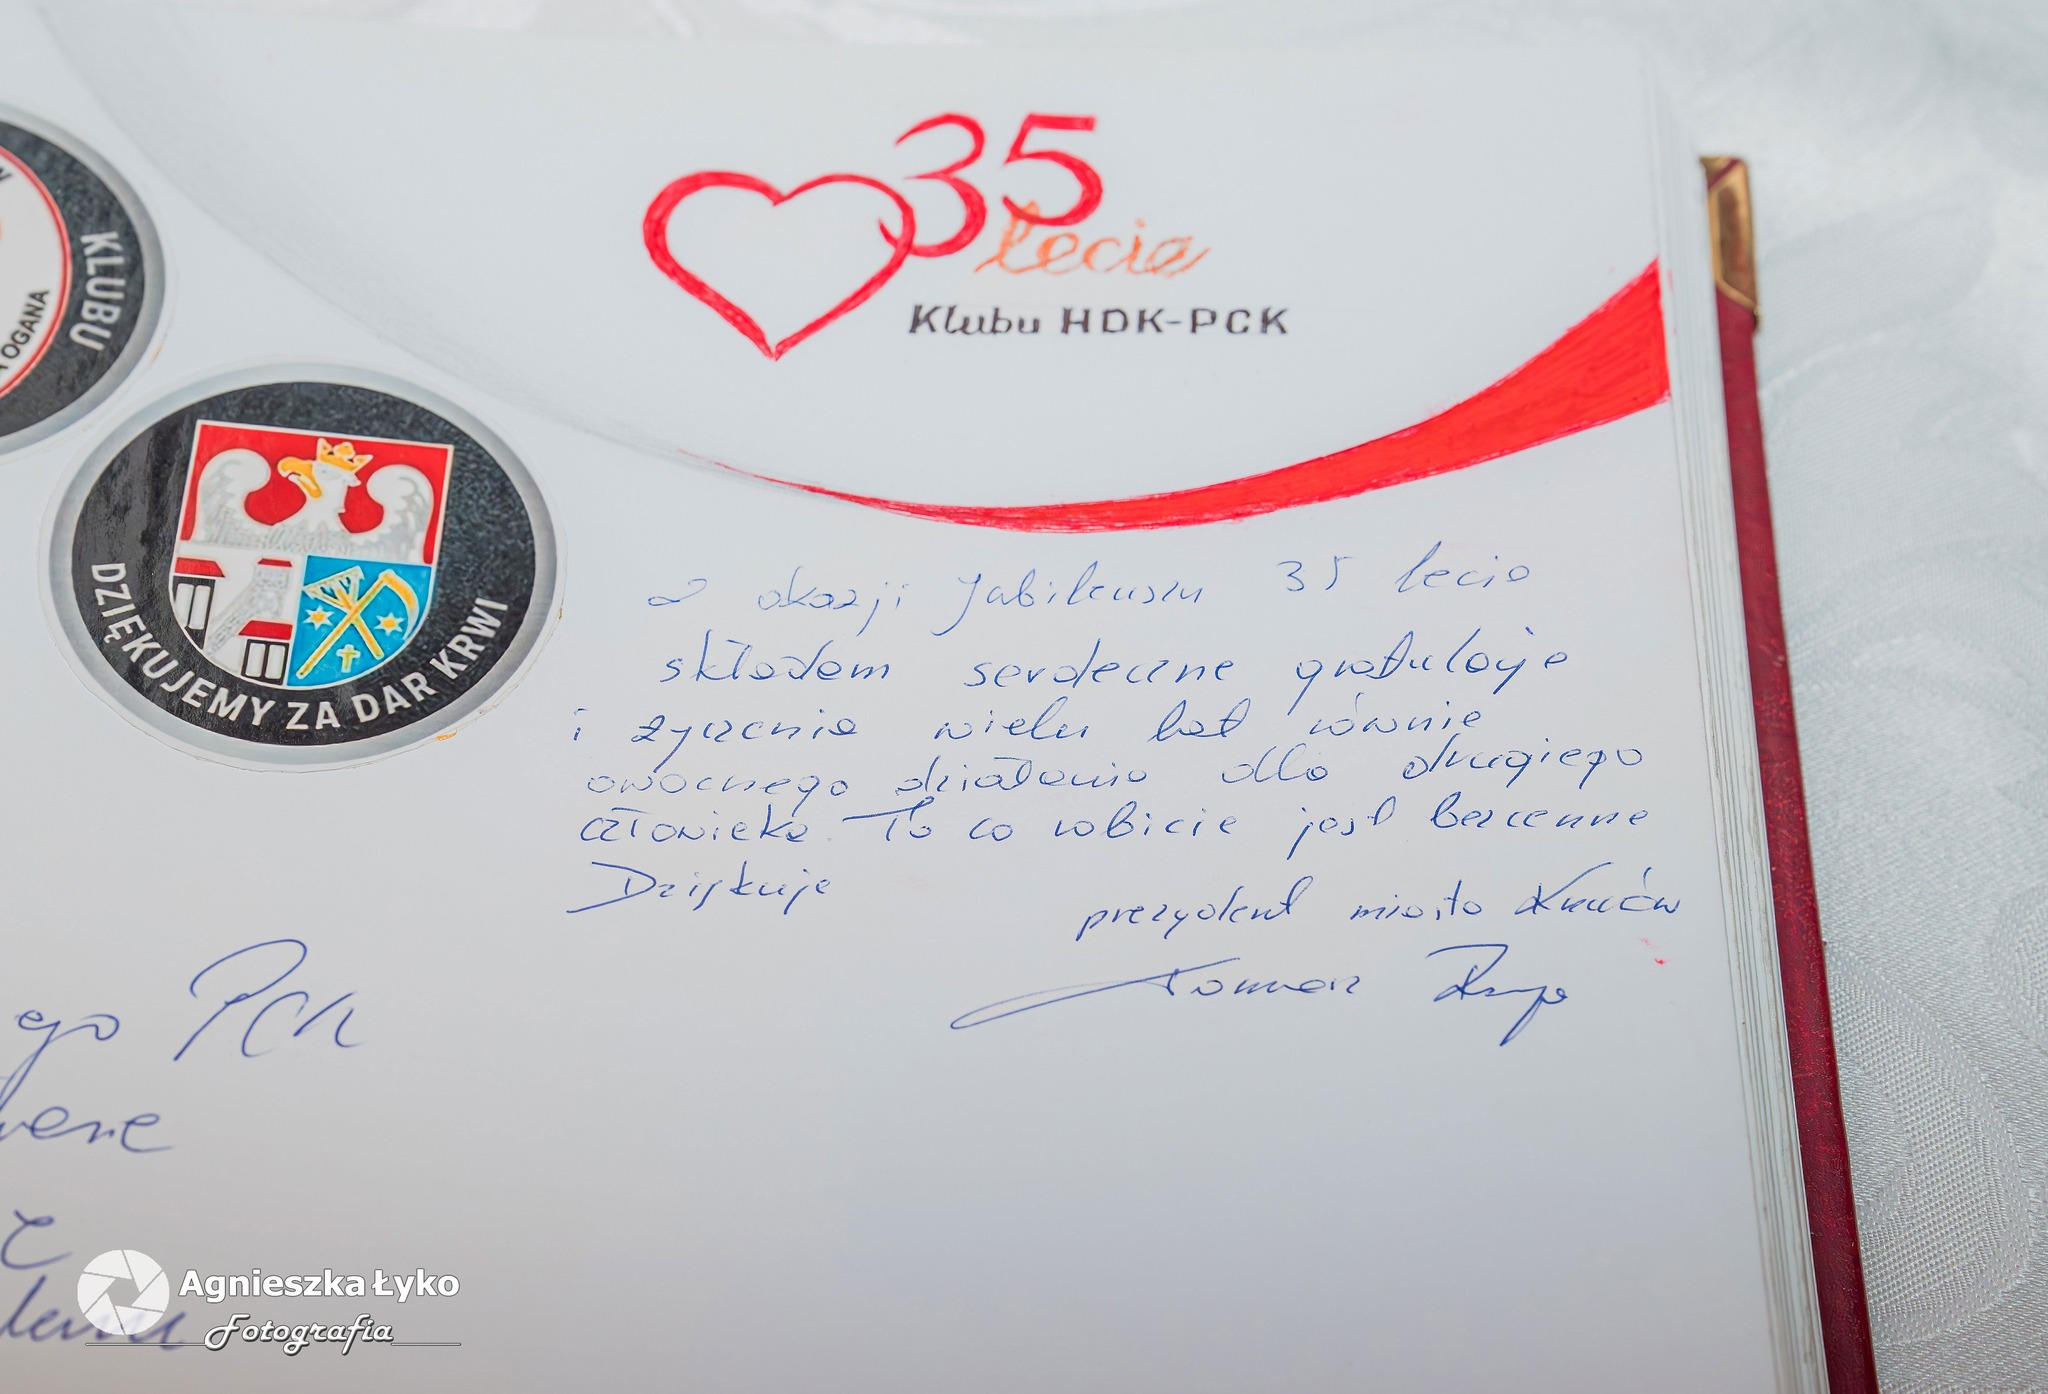 KLUBU
OGANA
35
lecie
Klubu HDK-PCK
DZIĘKUJEMY ZA DAR KRWI
Z okazji Jubileuszu 35 lecia
składam serdeczne gratulacje
i życzenia wielu lat równie
owocnego działania dla drugiego
człowieka. To co robicie jest bezcenne
Dziękuję
prezydent miasta Knurów
Tomasz Rzepa
ego PCK
Agnieszka Łyko
Fotografia